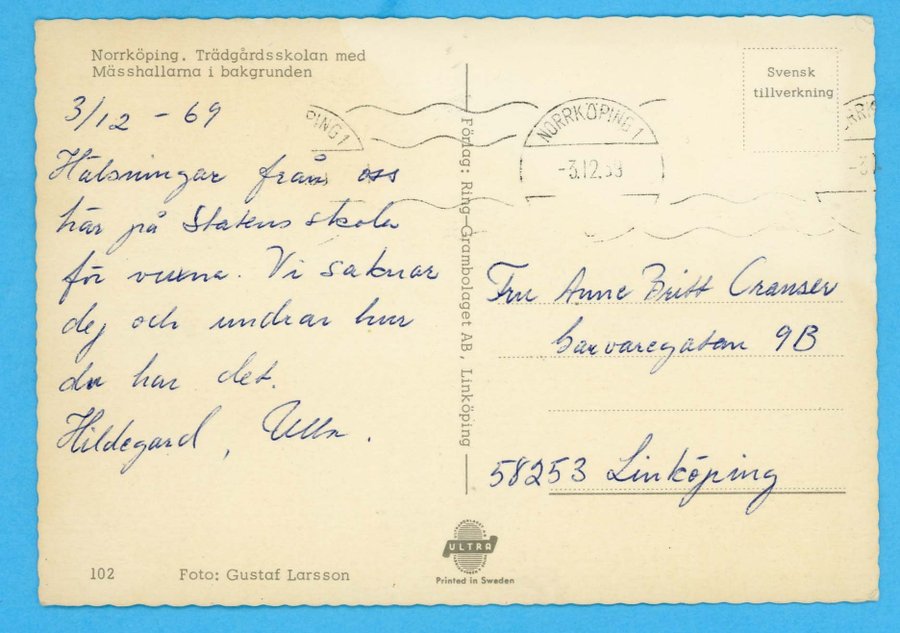 Norrköping. Trädgårdsskolan med
Mässhallarna i bakgrunden
3/12 - 69
Hälsningar från oss
här på Statens skola
för vuxna. Vi saknar
dej och undrar hur
du har det.
Hildegard, Ulla.
102
Foto: Gustaf Larsson
Förlag: Ring-Grambolaget AB, Linköping
ULTRA
Printed in Sweden
Svensk
tillverkning
PING 1
NORRKÖPING 1
-3.12.69
-3
Fru Anne Britt Cranser
Garvaregatan 9B
58253 Linköping